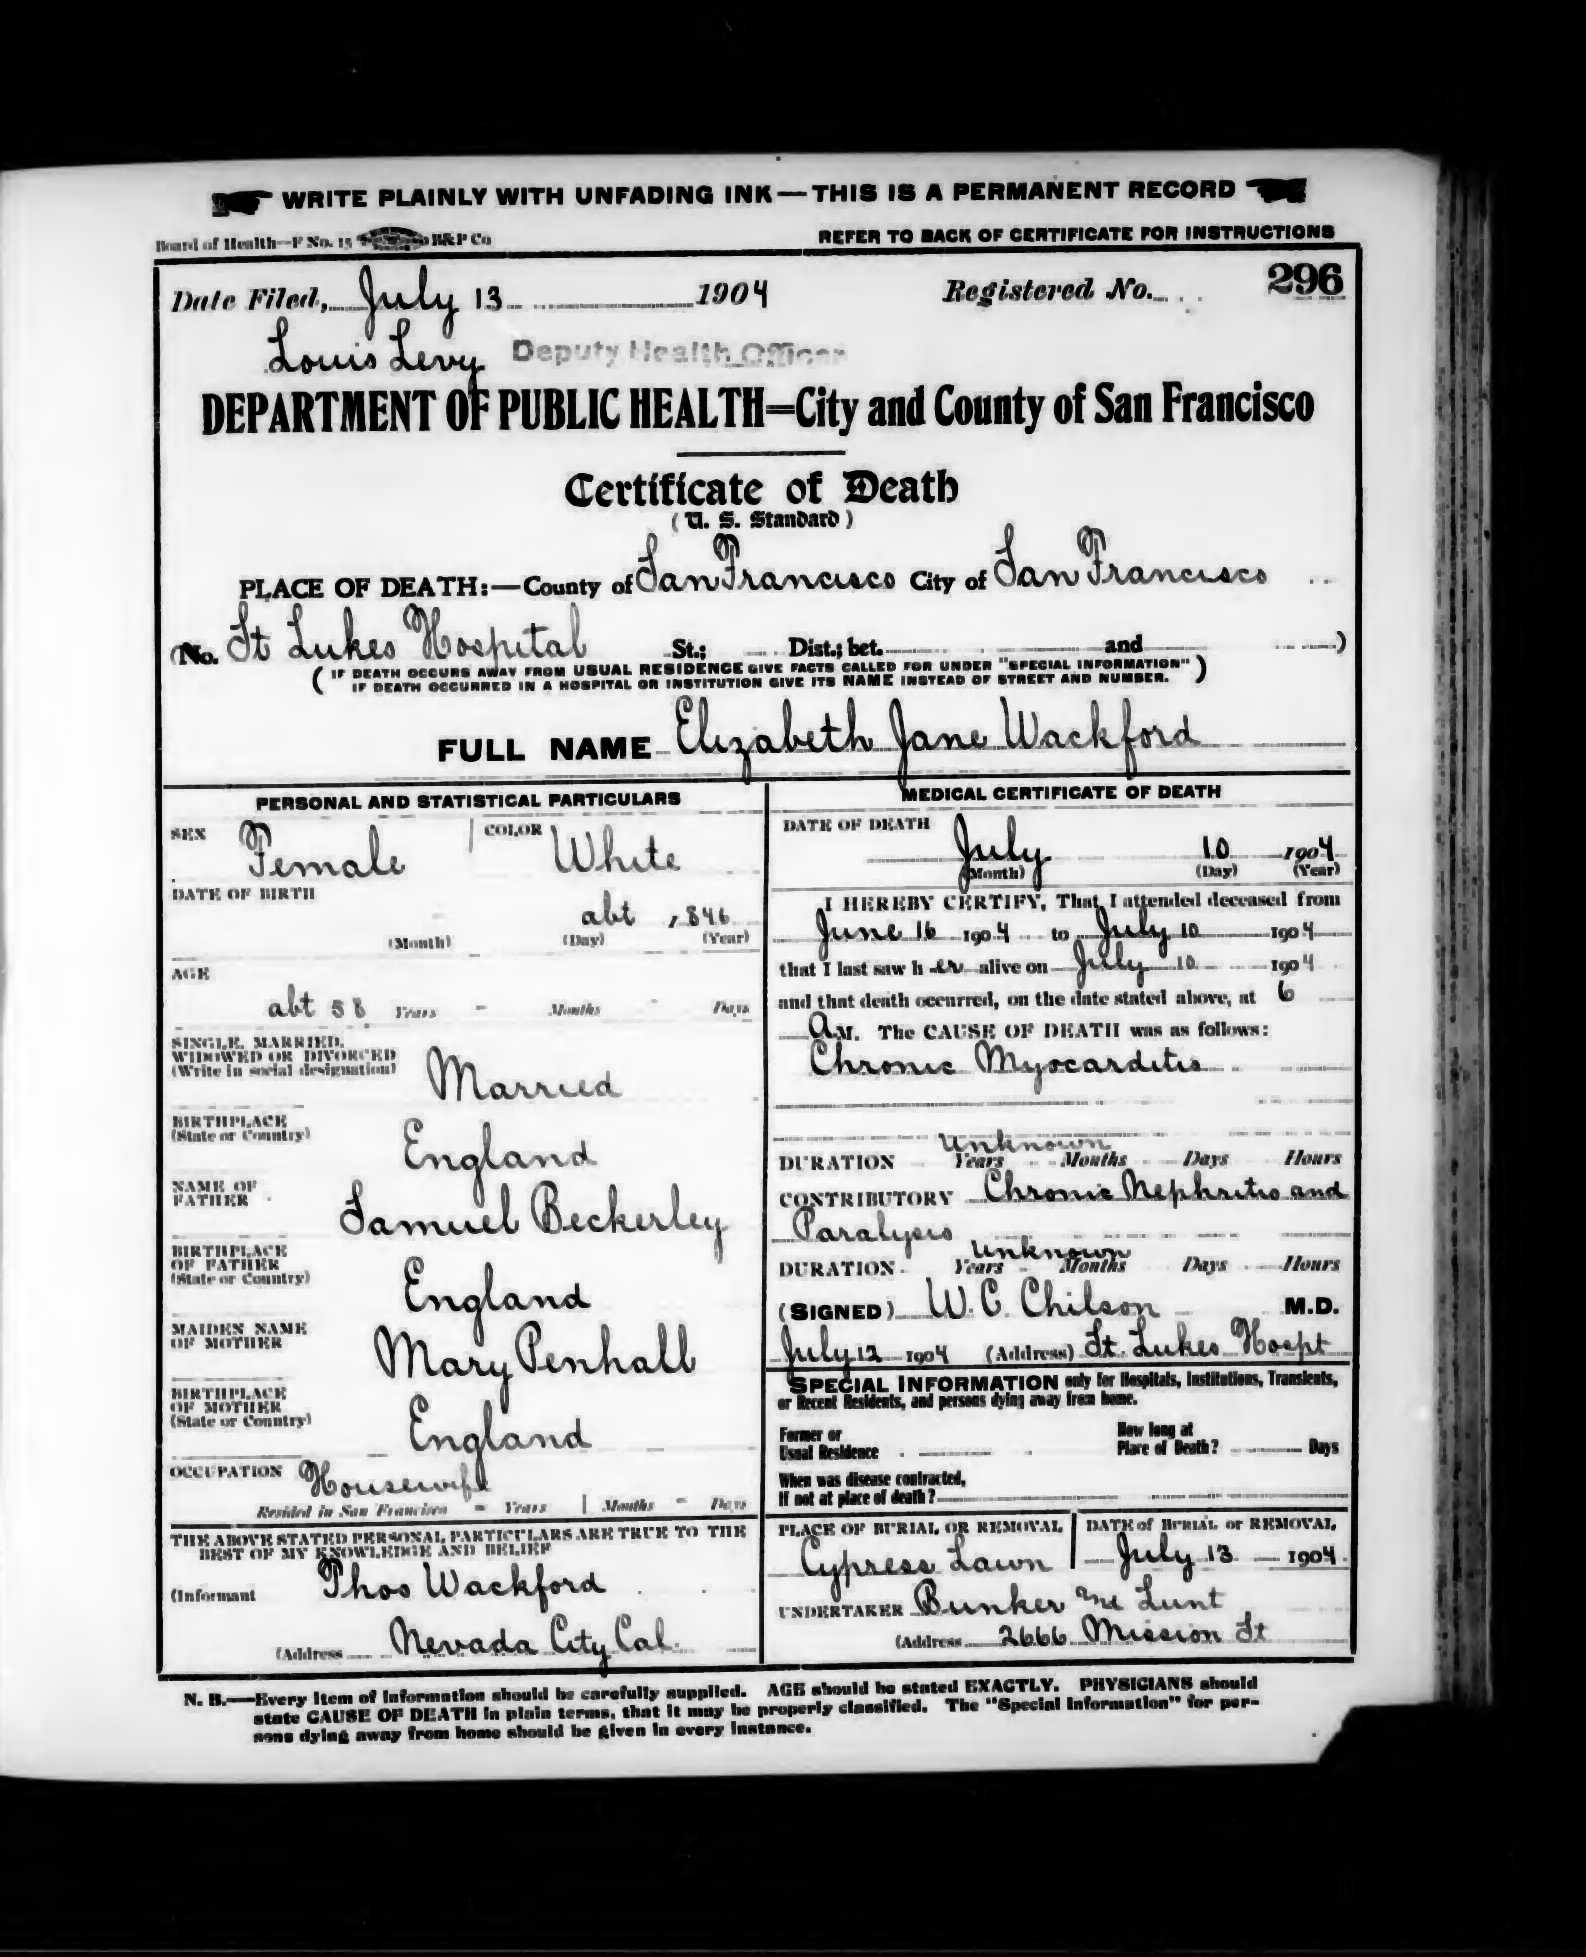 WRITE PLAINLY WITH UNFADING INK—THIS IS A PERMANENT RECORD
Board of Health—F No. 15 B&P Co REFER TO BACK OF CERTIFICATE FOR INSTRUCTIONS
Date Filed, July 13 1904 Registered No. 296
Louis Levy Deputy Health Officer
DEPARTMENT OF PUBLIC HEALTH=City and County of San Francisco
Certificate of Death
(U. S. Standard)
PLACE OF DEATH:—County of San Francisco City of San Francisco
(No. St Lukes Hospital St.; Dist.; bet. and )
( IF DEATH OCCURS AWAY FROM USUAL RESIDENCE GIVE FACTS CALLED FOR UNDER "SPECIAL INFORMATION" )
IF DEATH OCCURRED IN A HOSPITAL OR INSTITUTION GIVE ITS NAME INSTEAD OF STREET AND NUMBER.
FULL NAME Elizabeth Jane Wackford
PERSONAL AND STATISTICAL PARTICULARS
SEX Female COLOR White
DATE OF BIRTH
abt 1846
(Month) (Day) (Year)
AGE
abt 58 Years - Months - Days
SINGLE, MARRIED,
WIDOWED OR DIVORCED
(Write in social designation) Married
BIRTHPLACE
(State or Country) England
NAME OF
FATHER Samuel Beckerley
BIRTHPLACE
OF FATHER
(State or Country) England
MAIDEN NAME
OF MOTHER Mary Penhall
BIRTHPLACE
OF MOTHER
(State or Country) England
OCCUPATION Housewife
Resided in San Francisco - Years 1 Months - Days
THE ABOVE STATED PERSONAL PARTICULARS ARE TRUE TO THE
BEST OF MY KNOWLEDGE AND BELIEF
(Informant Thos Wackford
(Address Nevada City Cal.
MEDICAL CERTIFICATE OF DEATH
DATE OF DEATH
July 10 1904
(Month) (Day) (Year)
I HEREBY CERTIFY, That I attended deceased from
June 16 1904 to July 10 1904
that I last saw h er alive on July 10 1904
and that death occurred, on the date stated above, at 6
A M. The CAUSE OF DEATH was as follows:
Chronic Myocarditis
Unknown
DURATION Years Months Days Hours
CONTRIBUTORY Chronic Nephritis and
Paralysis
Unknown
DURATION Years Months Days Hours
(SIGNED) W. C. Chilson M.D.
July 12 1904 (Address) St. Lukes Hospt
SPECIAL INFORMATION only for Hospitals, Institutions, Transients,
or Recent Residents, and persons dying away from home.
Former or
Usual Residence
How long at
Place of Death? Days
When was disease contracted,
If not at place of death?
PLACE OF BURIAL OR REMOVAL
Cypress Lawn
DATE of BURIAL or REMOVAL
July 13 1904
UNDERTAKER Bunker and Lunt
(Address 2666 Mission St
N. B.—Every item of information should be carefully supplied. AGE should be stated EXACTLY. PHYSICIANS should
state CAUSE OF DEATH in plain terms, that it may be properly classified. The "Special Information" for per-
sons dying away from home should be given in every instance.